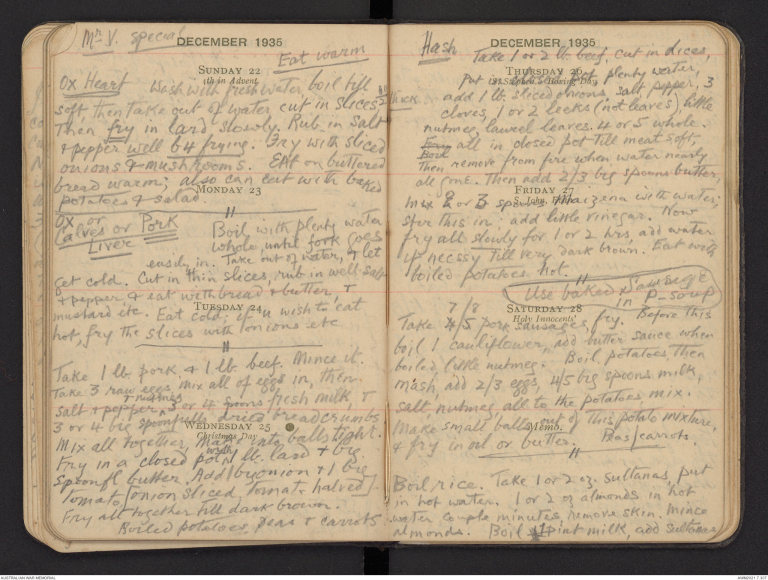 Mr V. special
DECEMBER 1935
Eat warm
SUNDAY 22
4th in Advent.
Ox Heart Wash with fresh water boil till
soft, then take out of water cut in slices 1/2" thick.
Then fry in lard slowly. Rub in salt
& pepper well b4 frying. Fry with sliced
onions & mushrooms. Eat on buttered
bread warm; also can eat with baked
MONDAY 23
potatoes & salad.
Ox or
Calves or Pork
Liver
Boil with plenty water
whole, until fork goes
easily in. Take out of water, & let
get cold. Cut in thin slices, rub in well salt
& pepper, & eat with bread & butter, &
mustard etc. Eat cold; if u wish to eat
TUESDAY 24
hot, fry the slices with onions etc
Take 1 lb. pork & 1 lb. beef. Mince it.
Take 3 raw eggs mix all of eggs in, then
salt & pepper & nutmeg 3 or 4 spoons fresh milk &
3 or 4 big spoonfuls dried breadcrumbs
WEDNESDAY 25
Christmas Day
Mix all together, make into balls tight.
Fry in a closed pot with 1 lb. lard & big
Spoonfl butter. Add 1 big onion & 1 big
Tomato [onion sliced, tomato halved].
Fry all together till dark brown.
Boiled potatoes, peas & carrots
DECEMBER 1935
Hash Take 1 or 2 lb. beef, cut in dices,
THURSDAY 26
St. Stephen. Boxing Day
put in pot plenty water,
add 1 lb. sliced onions, salt pepper, 3
cloves, 1 or 2 leeks (not leaves) little
nutmeg, laurel leaves 4 or 5 whole.
Boil all in closed pot till meat soft,
then remove from fire when water nearly
all gone. Then add 2/3 big spoons butter,
FRIDAY 27
S. John
mix 2 or 3 spoons Maizena with water;
stir this in; add little vinegar. Now
fry all slowly for 1 or 2 hrs, add water
if necssy till very dark brown. Eat with
boiled potatoes hot.
Use baked sausage
in P-soup
SATURDAY 28
Holy Innocents'
7/8
Take 4/5 pork sausages, fry. Before this
boil 1 cauliflower, add butter sauce when
boiled, little nutmeg. Boil potatoes, then
mash, add 2/3 eggs, 4/5 big spoons milk,
salt, nutmeg, all to the potatoes mix.
Make small balls out of this potato mixture,
Memb.
& fry in oil or butter. Peas/carrots.
Boil rice. Take 1 or 2 oz. sultanas, put
in hot water. 1 or 2 oz almonds in hot
water couple minutes, remove skin. Mince
almonds. Boil 1 pint milk, add sultanas
AUSTRALIAN WAR MEMORIAL